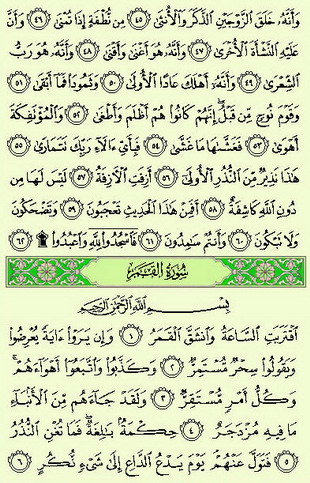 وَأَنَّهُۥ خَلَقَ ٱلزَّوْجَيْنِ ٱلذَّكَرَ وَٱلْأُنثَىٰ ٤٥ مِن نُّطْفَةٍ إِذَا تُمْنَىٰ ٤٦ وَأَنَّ
عَلَيْهِ ٱلنَّشْأَةَ ٱلْأُخْرَىٰ ٤٧ وَأَنَّهُۥ هُوَ أَغْنَىٰ وَأَقْنَىٰ ٤٨ وَأَنَّهُۥ هُوَ رَبُّ
ٱلشِّعْرَىٰ ٤٩ وَأَنَّهُۥٓ أَهْلَكَ عَادًا ٱلْأُولَىٰ ٥٠ وَثَمُودَا۟ فَمَآ أَبْقَىٰ ٥١
وَقَوْمَ نُوحٍ مِّن قَبْلُ ۖ إِنَّهُمْ كَانُوا۟ هُمْ أَظْلَمَ وَأَطْغَىٰ ٥٢ وَٱلْمُؤْتَفِكَةَ
أَهْوَىٰ ٥٣ فَغَشَّىٰهَا مَا غَشَّىٰ ٥٤ فَبِأَىِّ ءَالَآءِ رَبِّكَ تَتَمَارَىٰ ٥٥
هَٰذَا نَذِيرٌ مِّنَ ٱلنُّذُرِ ٱلْأُولَىٰٓ ٥٦ أَزِفَتِ ٱلْءَازِفَةُ ٥٧ لَيْسَ لَهَا مِن
دُونِ ٱللَّهِ كَاشِفَةٌ ٥٨ أَفَمِنْ هَٰذَا ٱلْحَدِيثِ تَعْجَبُونَ ٥٩ وَتَضْحَكُونَ
وَلَا تَبْكُونَ ٦٠ وَأَنتُمْ سَٰمِدُونَ ٦١ فَٱسْجُدُوا۟ لِلَّهِ وَٱعْبُدُوا۟ ۩ ٦٢
سُورَةُ القَمَرِ
بِسْمِ ٱللَّهِ ٱلرَّحْمَٰنِ ٱلرَّحِيمِ
ٱقْتَرَبَتِ ٱلسَّاعَةُ وَٱنشَقَّ ٱلْقَمَرُ ١ وَإِن يَرَوْا۟ ءَايَةً يُعْرِضُوا۟
وَيَقُولُوا۟ سِحْرٌ مُّسْتَمِرٌّ ٢ وَكَذَّبُوا۟ وَٱتَّبَعُوٓا۟ أَهْوَآءَهُمْ ۚ
وَكُلُّ أَمْرٍ مُّسْتَقِرٌّ ٣ وَلَقَدْ جَآءَهُم مِّنَ ٱلْأَنۢبَآءِ
مَا فِيهِ مُزْدَجَرٌ ٤ حِكْمَةٌۢ بَٰلِغَةٌ ۖ فَمَا تُغْنِ ٱلنُّذُرُ
٥ فَتَوَلَّ عَنْهُمْ ۘ يَوْمَ يَدْعُ ٱلدَّاعِ إِلَىٰ شَىْءٍ نُّكُرٍ ٦